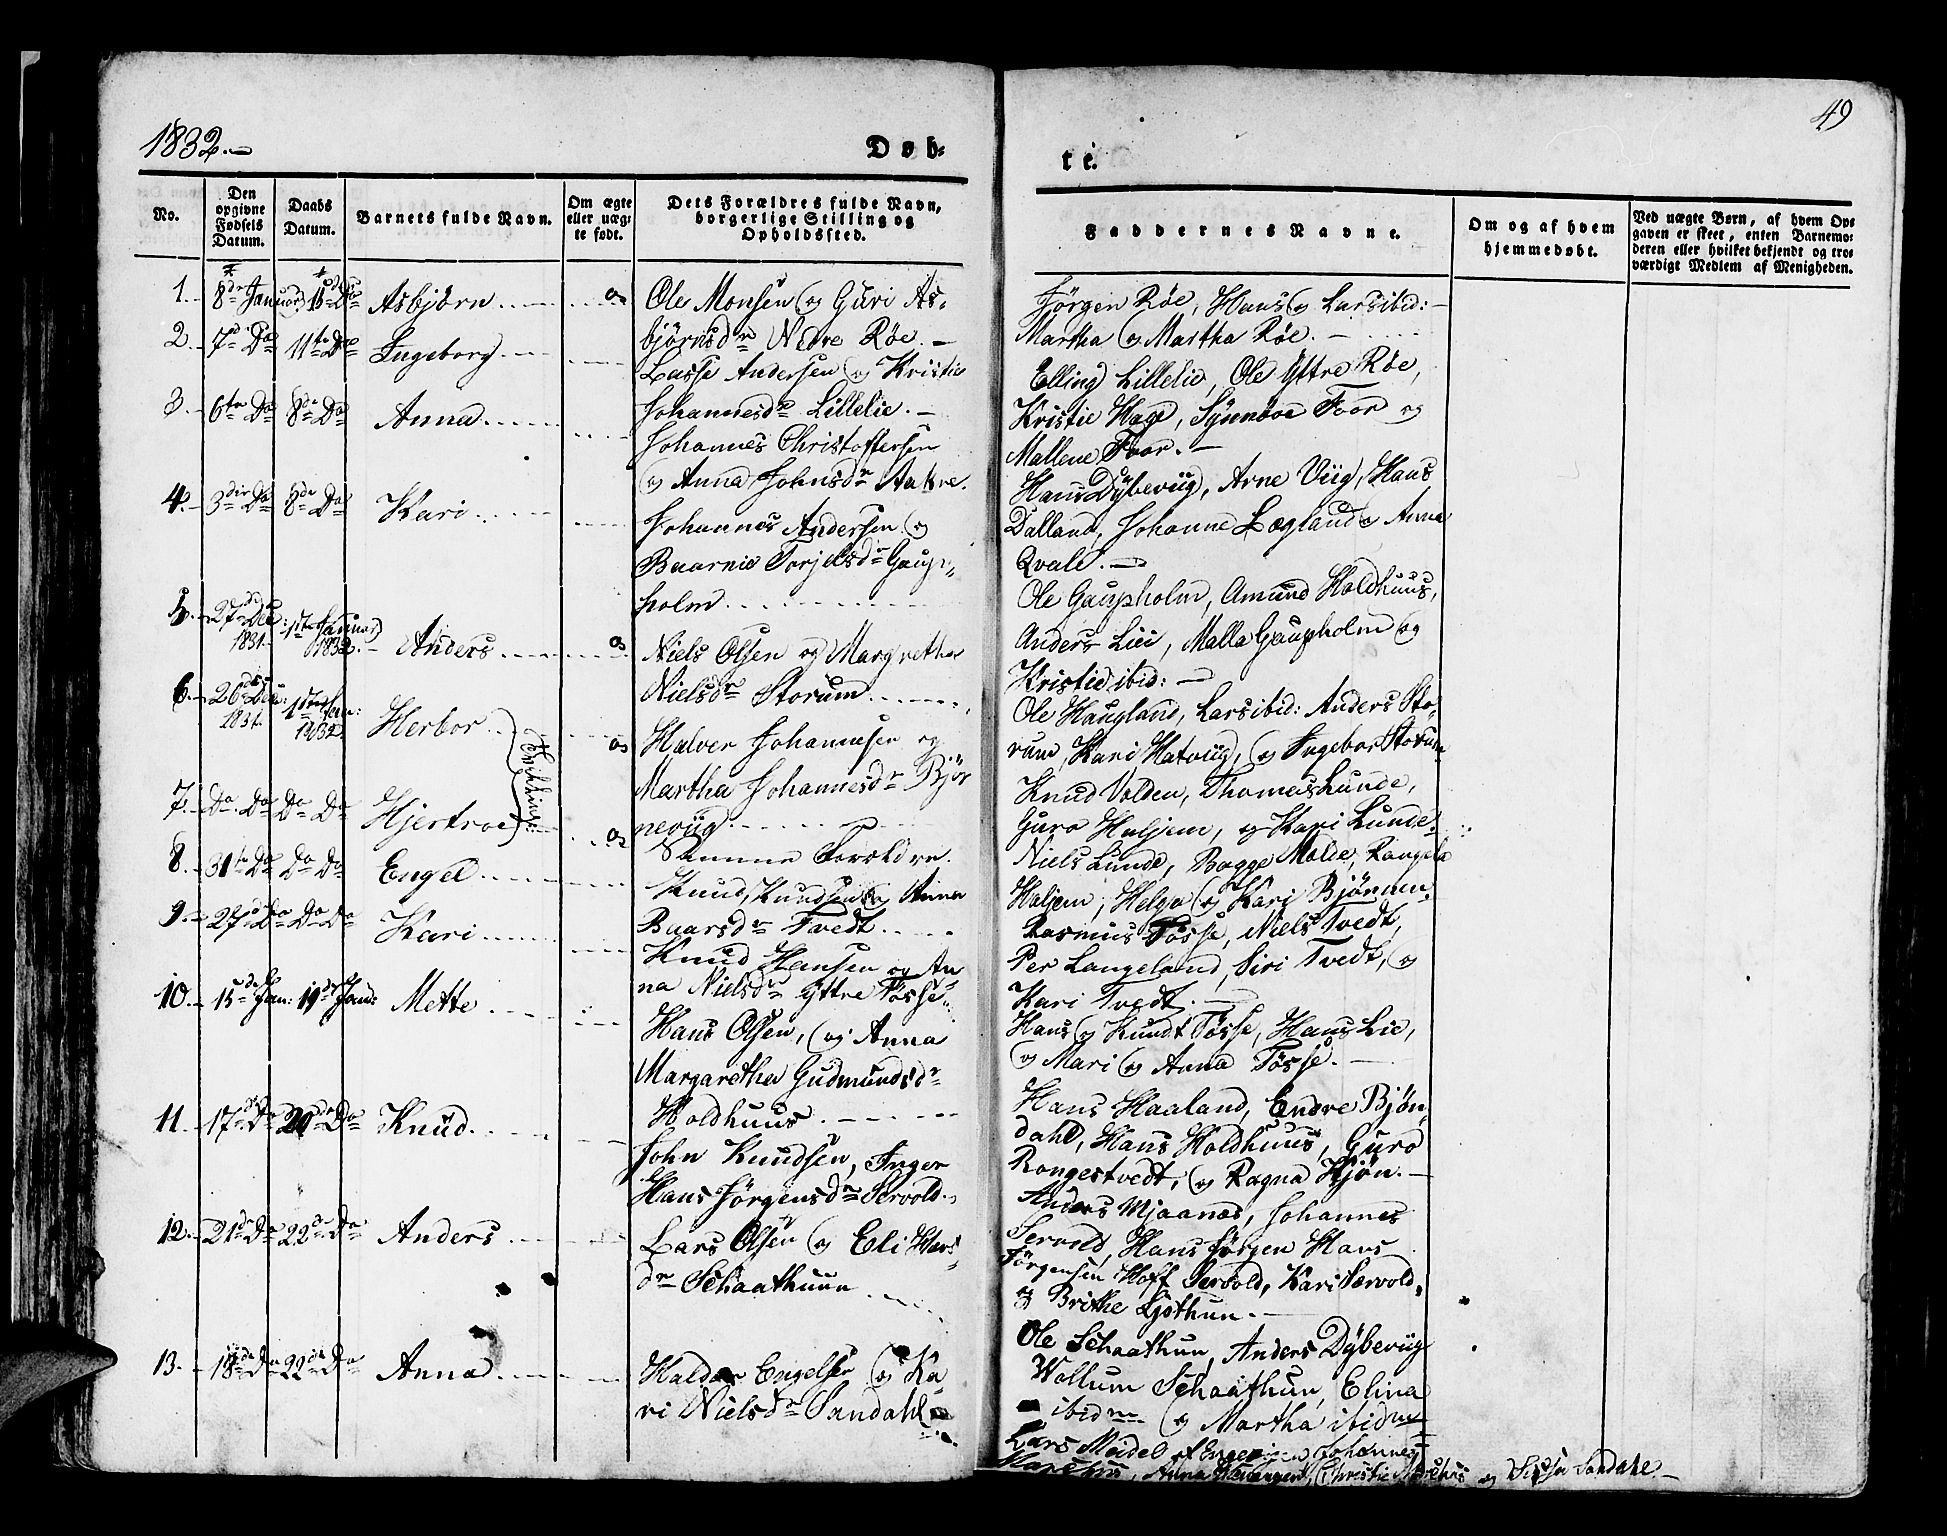 1832.
49
Døb-
te.
No.
Den opgivne Fødsels Datum.
Daabs Datum.
Barnets fulde Navn.
Om ægte eller uægte født.
Dets Forældres fulde Navn, borgerlige Stilling og Opholdssted.
Faddernes Navne.
Om og af hvem hjemmedøbt.
Ved uægte Børn, af hvem Opgaven er skeet, enten Barnemoderen eller hvilket bekjendt og troværdigt Medlem af Menigheden.
1. 8de Januar Asbjørn
2. 7de Do 11te Do Ingeborg
3. 6te Do 8de Do Anna
4. 3die Do 8de Do Kari
5. 27de Dec: 1831. 1ste Januar 1832. Anders
6. 26de Dec: 1831. 1ste Jan: 1832. Herbor
Tvillinger
7. Do Do Do Do Hjertroe
8. 31te Do Do Do Engel
9. 27de Do Do Do Kari
10. 15de Jan: 19de Jan: Mette
11. 17de Do Do Knud
12. 21de Do 22de Do Anders
13. 18de Do 22de Do Anna
Ole Monsen og Guri As-
bjørnsdr Nedre Røe.
Lasse Andersen og Kristie
Johannesdr Lillelie.
Johannes Christoffersen
og Anna Johnsdr Aakre
Johannes Andersen og
Baarnie Torjelsdr Gaup-
holm
Niels Olsen og Margrethe
Nielsdr Storum
Halver Johannesen og
Martha Johannesdr Bjør
nevüg
Samme Forældre.
Knud Knudsen og Anna
Baarsdr Tvedt
Knud Hansen og An-
na Nielsdr Yttre Tøsse
Hans Olsen, og Anna
Margaretha Gudmundsdr
Holdhuus
John Knudsen, Inger
Hans Jørgensdr Servold
Lars Olsen og Eli Hans
dr Schaathuun
Haldor Engelsen og Ka-
ri Nielsdr Sandahl
Jørgen Røe, Hans og Lars ibid:
Martha og Martha Røe.
Elling Lillelie, Ole Yttre Røe,
Kristie Hage, Synnøve Tvor og
Mallene Tvor.
Hans Dybevüg, Arne Vüg, Hans
Dalland, Johanne Lægland og Anna
Qvale.
Ole Gaupholm, Amund Holdhuus,
Anders Lici, Malla Gaupholm og
Kristie ibid:
Ole Haugland, Lars ibid: Anders Sto-
rum, Kari Hatvüg, og Ingebor Storum
Knud Volden, Thomas Lunde,
Guro Haljem, og Kari Lunde.
Niels Lunde, Bagge Molde, Rangela
Haljem, Helga og Kari Bjørnen.
Rasmus Tøsse, Niels Tvedt,
Per Langeland, Siri Tvedt, og
Kari Tvedt.
Hans og Kundt Tøsse, Hans Lie,
og Mari og Anna Tøsse.
Hans Haaland, Endre Bjøn-
dahl, Hans Holdhuus, Guro
Rongestvedt, og Ragna Kjøn.
Anders Mjaanæs, Johannes
Servold, Hans Jørgen Hans
Jørgensen Hoff Servold, Kari Særvold,
og Brithe Ljøthun.
Ole Schaathun, Anders Dybevüg
Wollum Schaathun, Elina
ibidm og Martha ibidm
Lars Meidel Johannes
Anna og Sandahl.